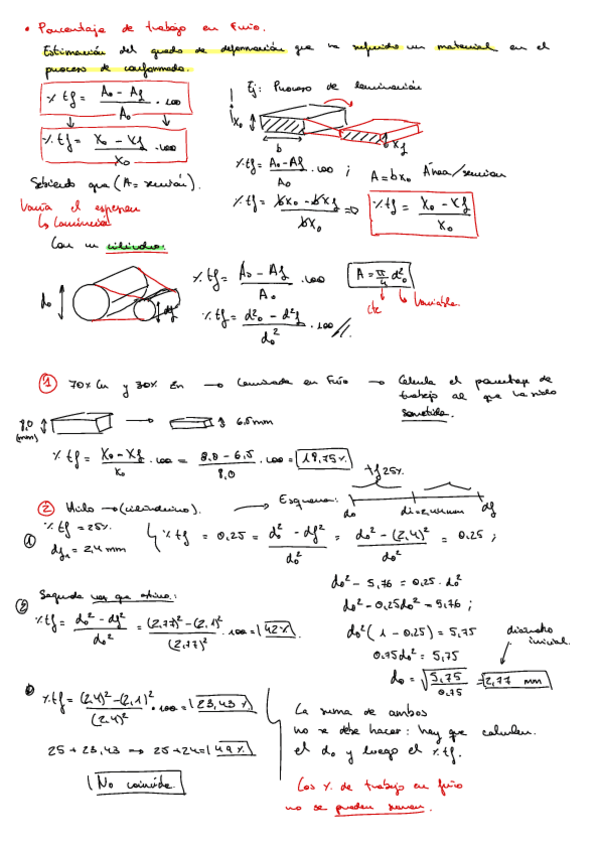 • Porcentaje de trabajo en Frío.
Estimación del grado de deformación que ha sufrido un material en el
proceso de conformado.
% tf = (A₀ - Af)/A₀ · 100
% tf = (X₀ - Xf)/X₀ · 100
Sabiendo que (A = sección).
Varía el espesor
↳ Laminación
Ej: Proceso de laminación
X₀
b
Xf
% tf = (A₀ - Af)/A₀ · 100 ; A = bx₀ Área/sección
% tf = (bx₀ - bxf)/bx₀ ⇒ % tf = (X₀ - Xf)/X₀
Con un cilindro.
d₀
df
% tf = (A₀ - Af)/A₀ · 100
A = π/4 d₀²
cte
Variable.
% tf = (d₀² - d²f)/d₀² · 100
① 70% Cu y 30% Zn → Laminada en Frío → Calcula el porcentaje de
trabajo al que ha sido
sometida.
8,0
(mm)
6,5 mm
% tf = (X₀ - Xf)/X₀ · 100 = (8,0 - 6,5)/8,0 · 100 = 18,75%.
② Hilo → (cilíndrico). → Esquema:
tf 25%
d₀
df
① % tf = 25%
df₁ = 2,4 mm
% tf = 0,25 = (d₀² - df²)/d₀² = (d₀² - (2,4)²)/d₀² = 0,25 ;
d₀² - 5,76 = 0,25 · d₀²
d₀² - 0,25d₀² = 5,76 ;
d₀² (1 - 0,25) = 5,75
0,75d₀² = 5,75
d₀ = √(5,75/0,75) = 2,77 mm
diámetro
inicial.
② Segunda vez que
% tf = (d₀² - df²)/d₀² = ((2,77)² - (2,1)²)/(2,77)² · 100 = 42%.
% tf = ((2,4)² - (2,1)²)/(2,4)² · 100 = 23,43%
25 + 23,43 → 25 + 24 = 49%.
No coincide.
La suma de ambos
no se debe hacer: hay que calcular
el d₀ y luego el % tf.
Los % de trabajo en frío
no se pueden sumar.